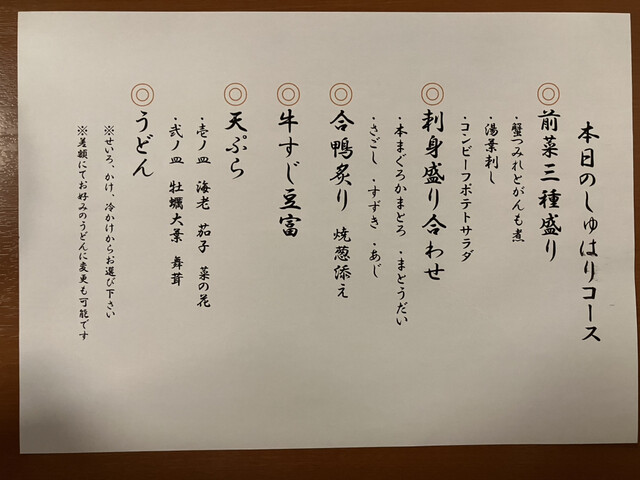 本日のしゅはりコース
◎前菜三種盛り
・蟹つみれとがんも煮
・湯葉刺し
・コンビーフポテトサラダ
◎刺身盛り合わせ
・本まぐろかまとろ ・まとうだい
・さごし ・すずき ・あじ
◎合鴨炙り 焼葱添え
◎牛すじ豆富
◎天ぷら
・壱ノ皿 海老 茄子 菜の花
・弐ノ皿 牡蠣大葉 舞茸
◎うどん
※せいろ、かけ、冷かけからお選び下さい
※差額にてお好みのうどんに変更も可能です